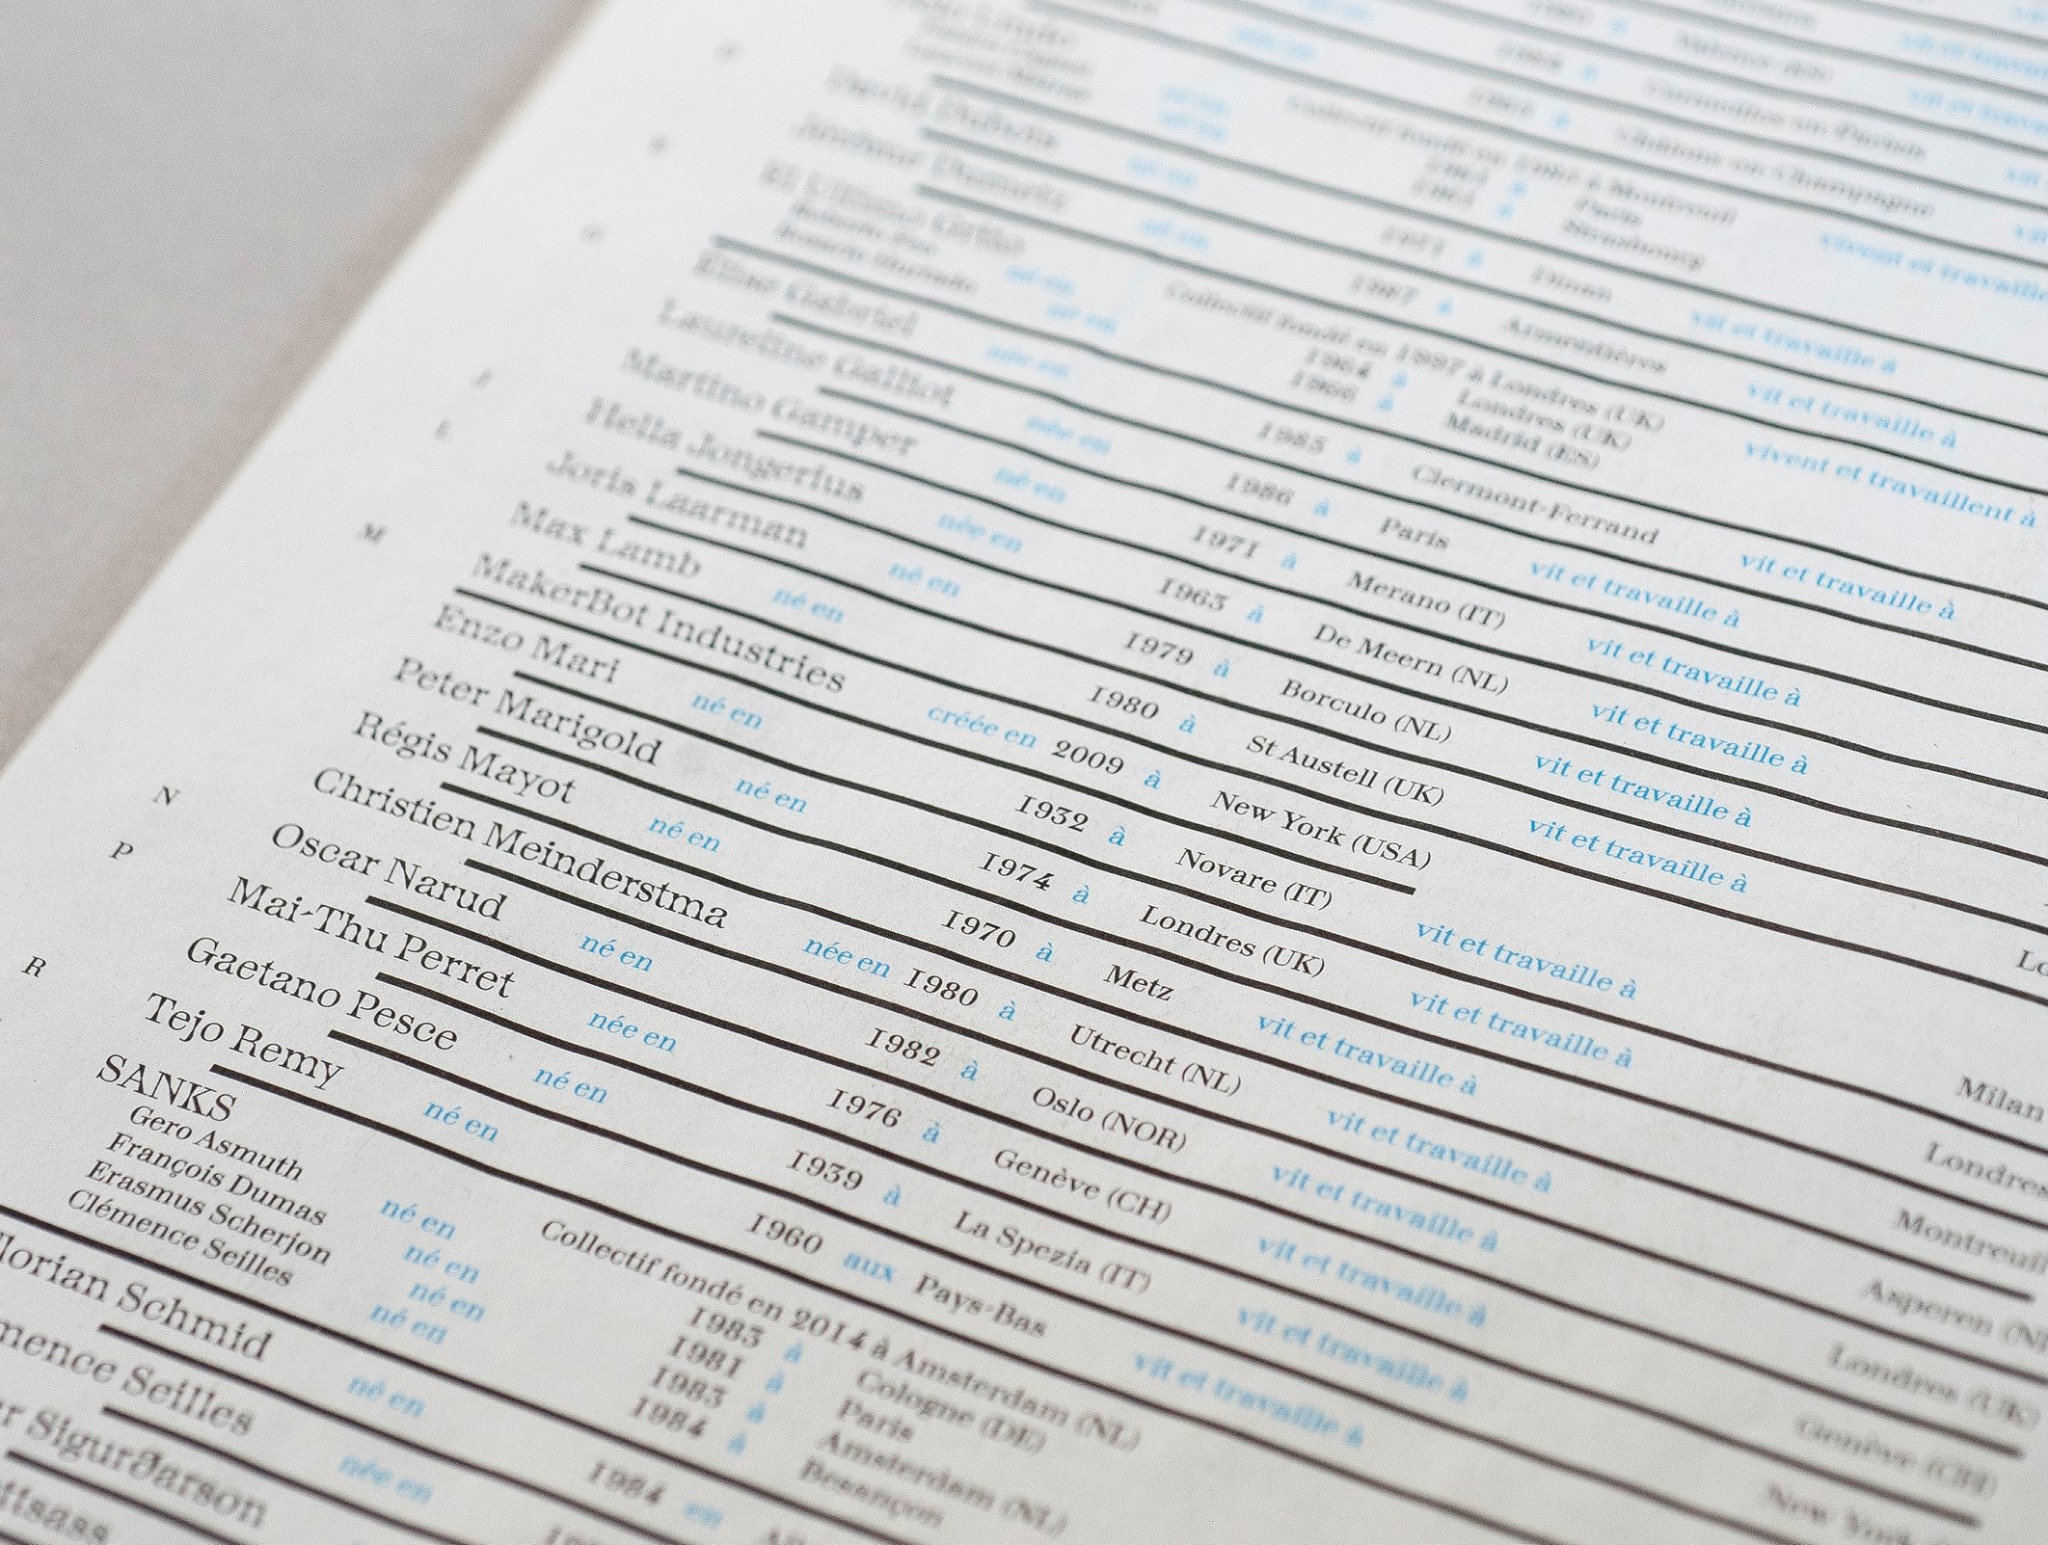 David Dubois né en 1971 à Dinan vit et travaille à
E Jérôme Dumetz né en 1987 à Armentières vit et travaille à
El Ultimo Grito Collectif fondé en 1997 à Londres (UK) vivent et travaillent à
Roberto Feo né en 1964 à Londres (UK)
Rosario Hurtado né en 1966 à Madrid (ES)
G Élise Gabriel née en 1985 à Clermont-Ferrand vit et travaille à
Laureline Galliot née en 1986 à Paris vit et travaille à
Martino Gamper né en 1971 à Merano (IT) vit et travaille à
J Hella Jongerius née en 1963 à De Meern (NL) vit et travaille à
L Joris Laarman né en 1979 à Borculo (NL) vit et travaille à
Max Lamb né en 1980 à St Austell (UK) vit et travaille à
M MakerBot Industries créée en 2009 à New York (USA)
Enzo Mari né en 1932 à Novare (IT) vit et travaille à Milan
Peter Marigold né en 1974 à Londres (UK) vit et travaille à Londres
Régis Mayot né en 1970 à Metz vit et travaille à Montreuil
Christien Meinderstma née en 1980 à Utrecht (NL) vit et travaille à Asperen
N Oscar Narud né en 1982 à Oslo (NOR) vit et travaille à Londres (UK)
P Mai-Thu Perret née en 1976 à Genève (CH) vit et travaille à Genève (CH)
Gaetano Pesce né en 1939 à La Spezia (IT) vit et travaille à New York
R Tejo Remy né en 1960 aux Pays-Bas vit et travaille à
SANKS Collectif fondé en 2014 à Amsterdam (NL)
Gero Asmuth né en 1983 à Cologne (DE)
François Dumas né en 1981 à Paris
Erasmus Scherjon né en 1983 à Amsterdam (NL)
Clémence Seilles né en 1984 à Besançon
lorian Schmid né en 1984 en
mence Seilles née en
r Sigurðarson
ttsass